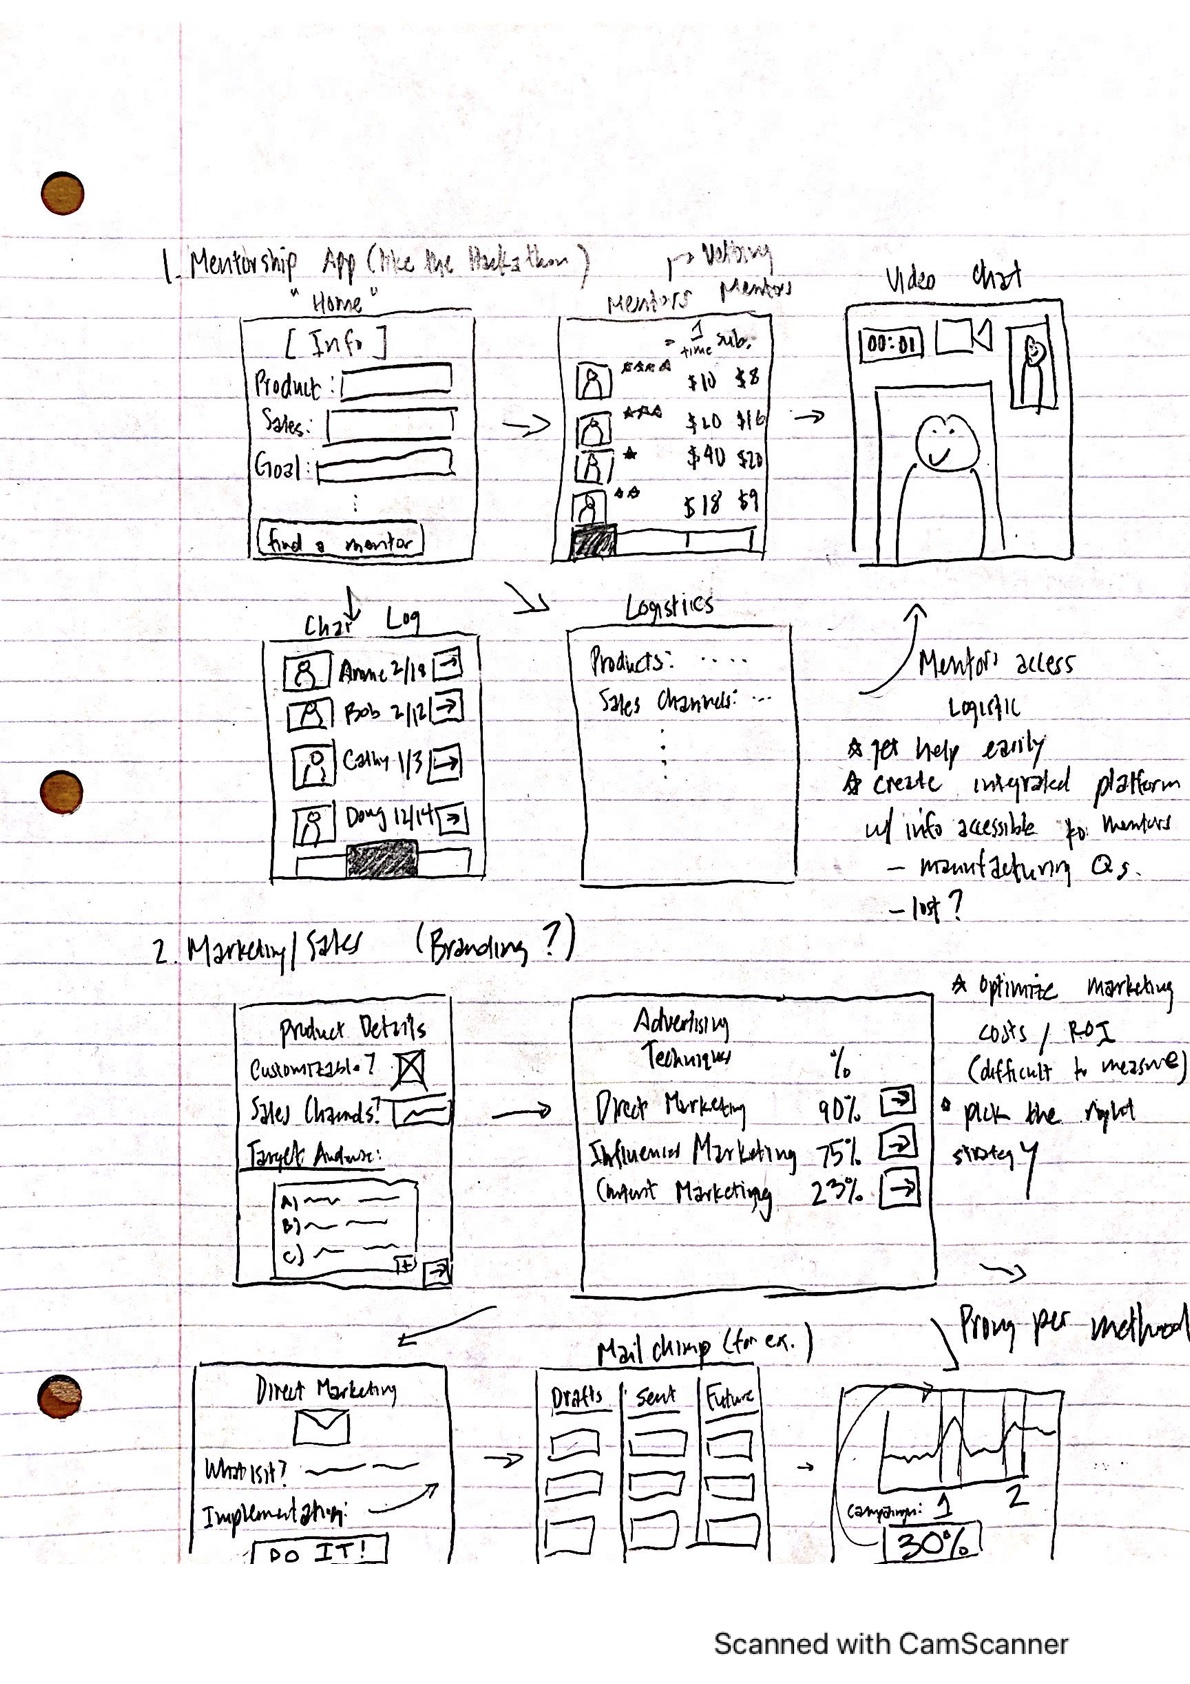 1. Mentorship App (like the Hackathon)
→ Vetting Mentors
"Home"
[Info]
Product:
Sales:
Goal:
find a mentor
Mentors
1 time sub.
☆☆☆☆ $10 $8
☆☆☆ $20 $16
☆ $40 $20
☆☆ $18 $9
Video Chat
00:01
Chat Log
Anne 2/18 →
Bob 2/12 →
Cathy 1/3 →
Doug 12/14 →
Logistics
Products: ....
Sales Channels: ...
Mentors access
Logistic
☆ get help easily
☆ create integrated platform
w/ info accessible to mentors
- manufacturing Qs.
- lost?
2. Marketing/Sales (Branding?)
Product Details
Customizable?
Sales Channels?
Target Audience:
A)
B)
C)
+
→
Advertising
Techniques %
Direct Marketing 90% →
Influencer Marketing 75% →
Content Marketing 23% →
☆ Optimize marketing
costs / ROI
(difficult to measure)
pick the right
strategy
per method
Direct Marketing
What is it?
Implementation:
DO IT!
Mail chimp (for ex.)
Drafts Sent Future
Campaign: 1 2
30%
Scanned with CamScanner